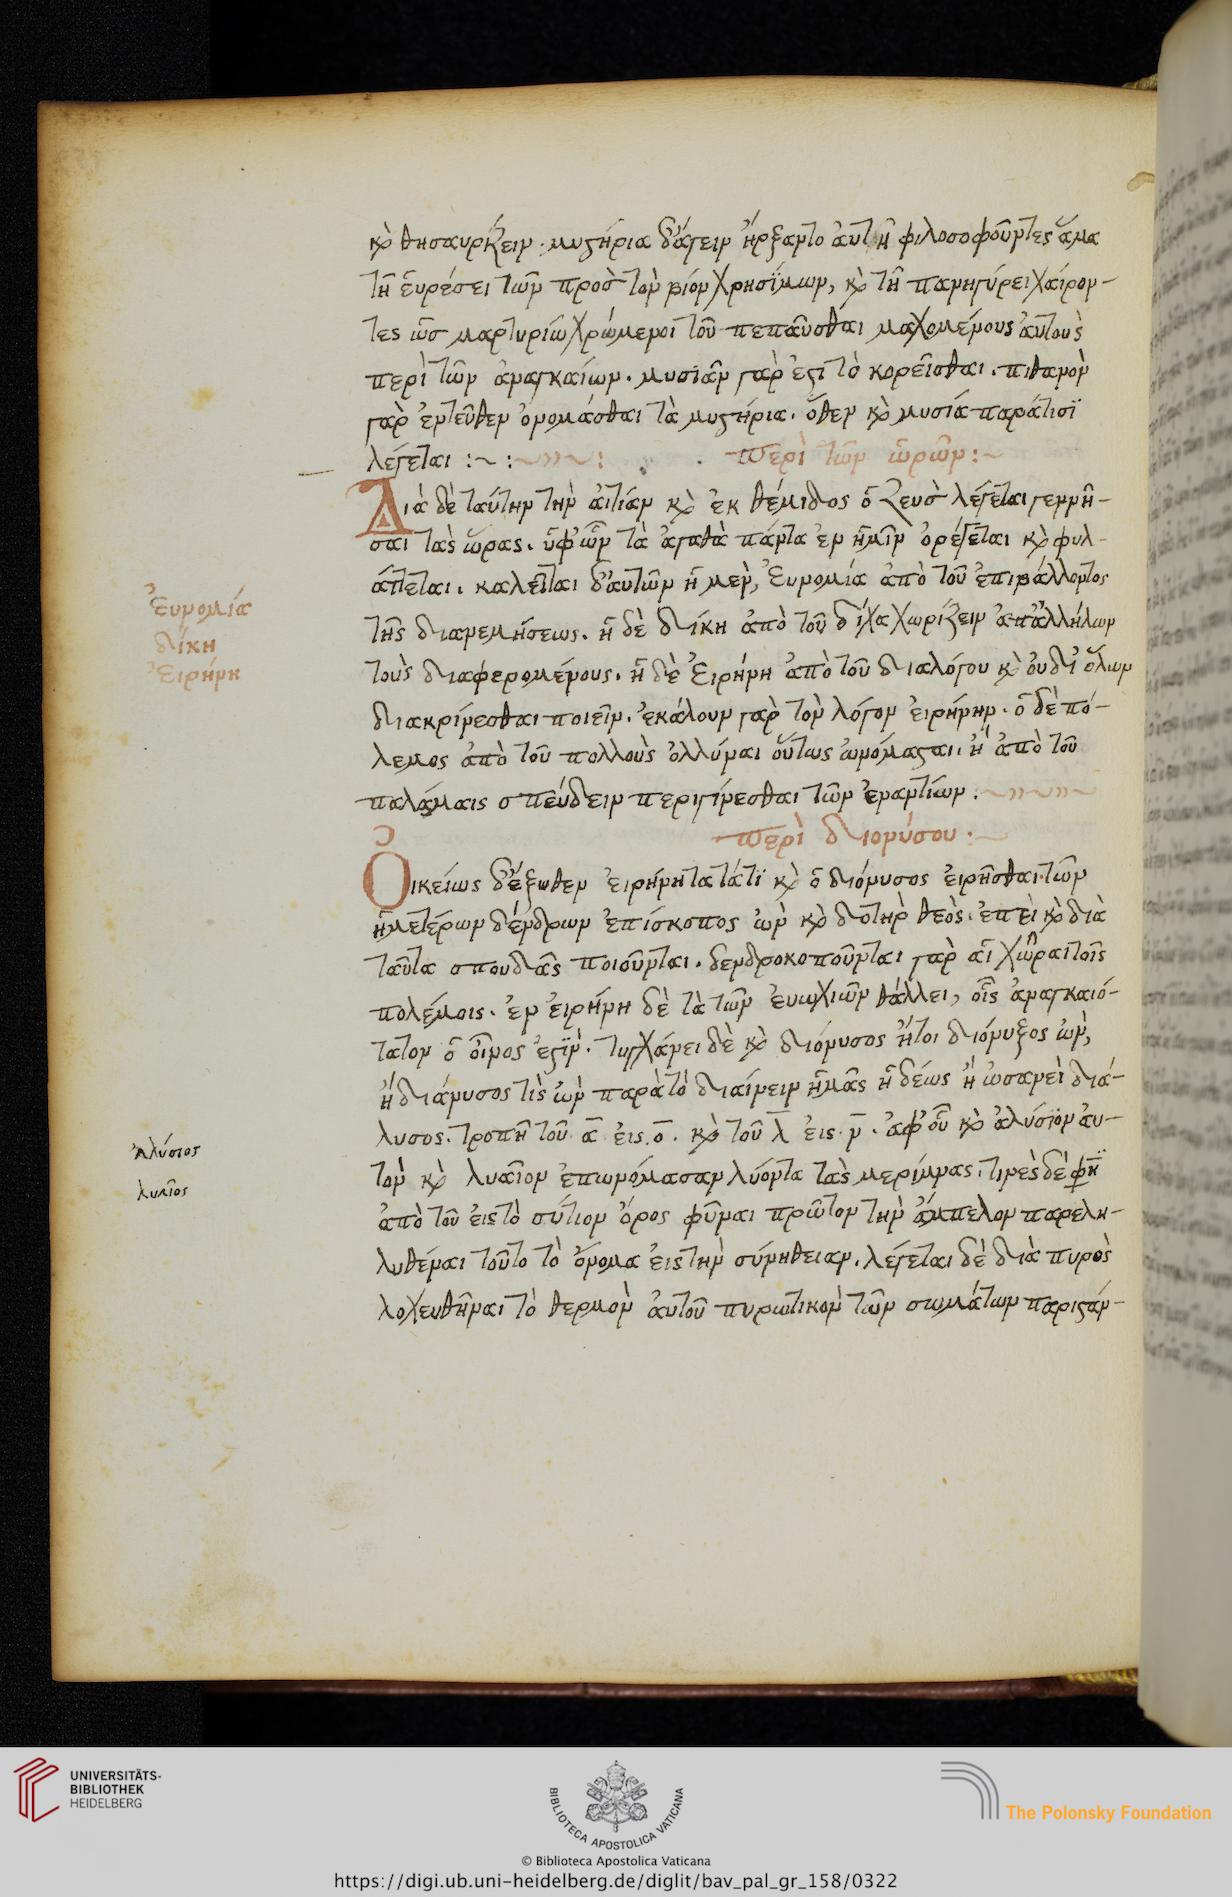 κ(αὶ) θησαυρίζειν. μυστήρια δ' ἄγειν ἤρξαντο αὐτῆ φιλοσοφοῦντες ἅμα
τῆ εὑρέσει τῶν πρὸσ τὸν βίον χρησίμων, κ(αὶ) τῆ πανηγύρει χαίρον-
τες ὡσ μαρτυρίω χρώμενοι τοῦ πεπαῦσθαι μαχομένους αὐτοὺς
περὶ τῶν ἀναγκαίων. μυσιᾶν γὰρ ἐστὶ τὸ κορεῖσθαι. πιθανὸν
γὰρ ἐντεῦθεν ὀνομάσθαι τὰ μυστήρια. ὅθεν κ(αὶ) μυσία παρά τισϊ
λέγεται :~ :~
περὶ τῶν ὡρῶν :~
Διὰ δὲ ταύτην τὴν αἰτίαν κ(αὶ) ἐκ θέμιδος ὁ Ζεὺσ λέγεται γεννῆ-
σαι τὰς ὥρας. ὑφ' ὧν τὰ ἀγαθὰ πάντα ἐν ἡμῖν ὀρέγεται κ(αὶ) φυλ-
άττεται. καλεῖται δ' αυτῶν ἡ μὲν, Ἐυνομία ἀπὸ τοῦ ἐπιβάλλοντος
τῆς διανεμήσεως. ἡ δὲ δίκη ἀπὸ τοῦ δίχα χωρίζειν ἀπ' ἀλλήλων
τοὺς διαφερομένους. ἡ δὲ Ἐιρήνη ἀπὸ τοῦ διαλόγου κ(αὶ) οὐ δι' ὅλων
διακρίνεσθαι ποιεῖν. ἐκάλουν γὰρ τὸν λόγον ἐιρήνην. ὁ δὲ πό-
λεμος ἀπὸ τοῦ πολλοὺς ὀλλύναι οὕτως ὠνόμασται. ἢ ἀπὸ τοῦ
παλάμαις σπεύδειν περιγίνεσθαι τῶν ἐναντίων :~
περὶ διονύσου ·~
Οικείως δ' ἔξωθεν ἐιρήνη τατάτϊ κ(αὶ) ὁ διόνυσος ἐιρῆσθαι· τῶν
ἡμετέρων δένδρων ἐπίσκοπος ὢν κ(αὶ) δοτὴρ θεὸς. ἐπεὶ κ(αὶ) διὰ
ταῦτα σπουδὰς ποιοῦνται. δενδροκοποῦνται γὰρ αἱ χῶραι τοῖς
πολέμοις. ἐν ἐιρήνη δὲ τὰ τῶν ἐυωχιῶν θάλλει, οἷς ἀναγκαιό-
τατον ὁ οἶνος ἐστὶν. τυγχάνει δὲ κ(αὶ) διόνυσος ἤτοι διόνυξος ὢν,
ἢ διάνυσος τὶς ὢν παρὰ τὸ διαίνειν ἡμᾶς ἡδέως ἢ ὡσανεὶ διά-
λυσος. τροπῆ τοῦ ᾱ εἰς ο̄. κ(αὶ) τοῦ λ̄ εἰς ν̄. ἀφ' οὗ κ(αὶ) ἀλύσϊον ἀυ-
τὸν κ(αὶ) λυαῖον ἐπωνόμασαν λύοντα τὰς μερίμνας. τινὲς δέ φ(ασι)
ἀπὸ τοῦ εἰς τὸ σύτιον ὄρος φῦναι πρῶτον τὴν ἄμπελον παρελη-
λυθέναι τοῦτο τὸ ὄνομα ἐις τὴν σύνηθειαν. λέγεται δὲ διὰ πυρὸς
λοχευθῆναι τὸ θερμὸν ἀυτοῦ πυρωτικὸν τῶν σωμάτων παριστάν-
Ἐυνομία
δίκη
Ἐιρήνη
Ἀλύσιος
λυαῖος
UNIVERSITÄTS-
BIBLIOTHEK
HEIDELBERG
BIBLIOTECA APOSTOLICA VATICANA
The Polonsky Foundation
© Biblioteca Apostolica Vaticana
https://digi.ub.uni-heidelberg.de/diglit/bav_pal_gr_158/0322